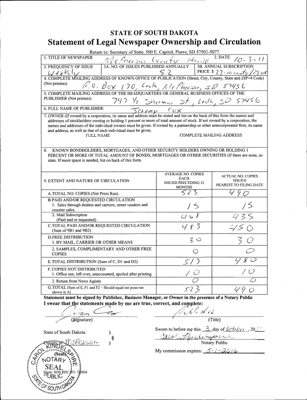 STATE OF SOUTH DAKOTA
Statement of Legal Newspaper Ownership and Circulation
Return to: Secretary of State, 500 E. Capitol, Pierre, SD 57501-5077
1. TITLE OF NEWSPAPER
2. DATE 10-3-11
3. FREQUENCY OF ISSUE
Weekly
3A. NO. OF ISSUES PUBLISHED ANNUALLY
52
3B. ANNUAL SUBSCRIPTION
PRICE $
4. COMPLETE MAILING ADDRESS OF KNOWN OFFICE OF PUBLICATION (Street, City, County, State and ZIP+4 Code)
(Not printer)
P.O. Box 170, Leola, McPherson, SD 57456
5. COMPLETE MAILING ADDRESS OF THE HEADQUARTERS OR GENERAL BUSINESS OFFICES OF THE
PUBLISHER (Not printer)
Leola, SD 57456
6. FULL NAME OF PUBLISHER:
Cox
7. OWNER (If owned by a corporation, its name and address must be stated and list on the back of this form the names and
addresses of stockholders owning or holding 1 percent or more of total amount of stock. If not owned by a corporation, the
names and addresses of the individual owners must be given. If owned by a partnership or other unincorporated firm, its name
and address, as well as that of each individual must be given.
FULL NAME
COMPLETE MAILING ADDRESS
8. KNOWN BONDHOLDERS, MORTGAGEES, AND OTHER SECURITY HOLDERS OWNING OR HOLDING 1
PERCENT OR MORE OF TOTAL AMOUNT OF BONDS, MORTGAGES OR OTHER SECURITIES (If there are none, so
state. If more space is needed, list on back of this form.
9. EXTENT AND NATURE OF CIRCULATION
AVERAGE NO. COPIES
EACH
ISSUE PRECEDING 12
MONTHS
ACTUAL NO. COPIES
ISSUED
NEAREST TO FILING DATE
A. TOTAL NO. COPIES (Net Press Run)
523
490
B. PAID AND/OR REQUESTED CIRCULATION
1. Sales through dealers and carriers, street vendors and
counter sales.
15
15
2. Mail Subscription
(Paid and or requested)
468
435
C. TOTAL PAID AND/OR REQUESTED CIRCULATION
(Sum of 9B1 and 9B2)
483
450
D. FREE DISTRIBUTION
1. BY MAIL, CARRIER OR OTHER MEANS
30
30
2. SAMPLES, COMPLIMENTARY AND OTHER FREE
COPIES
0
0
E. TOTAL DISTRIBUTION (Sum of C, D1 and D2)
513
480
F. COPIES NOT DISTRIBUTED
1. Office use, left over, unaccounted, spoiled after printing
10
10
2. Return from News Agents
0
0
G. TOTAL (Sum of E, F1 and F2 - Should equal net press run
shown in A)
523
490
Statement must be signed by Publisher, Business Manager, or Owner in the presence of a Notary Public
I swear that the statements made by me are true, correct, and complete:
(Signature)
Publisher
(Title)
State of South Dakota )
Sworn to before me this 3 day of October, 2011
McPherson
Notary Public
(Seal)
My commission expires: 5-1-2016
CAROL
NOTARY
SEAL
PUBLIC
SOUTH DAKOTA